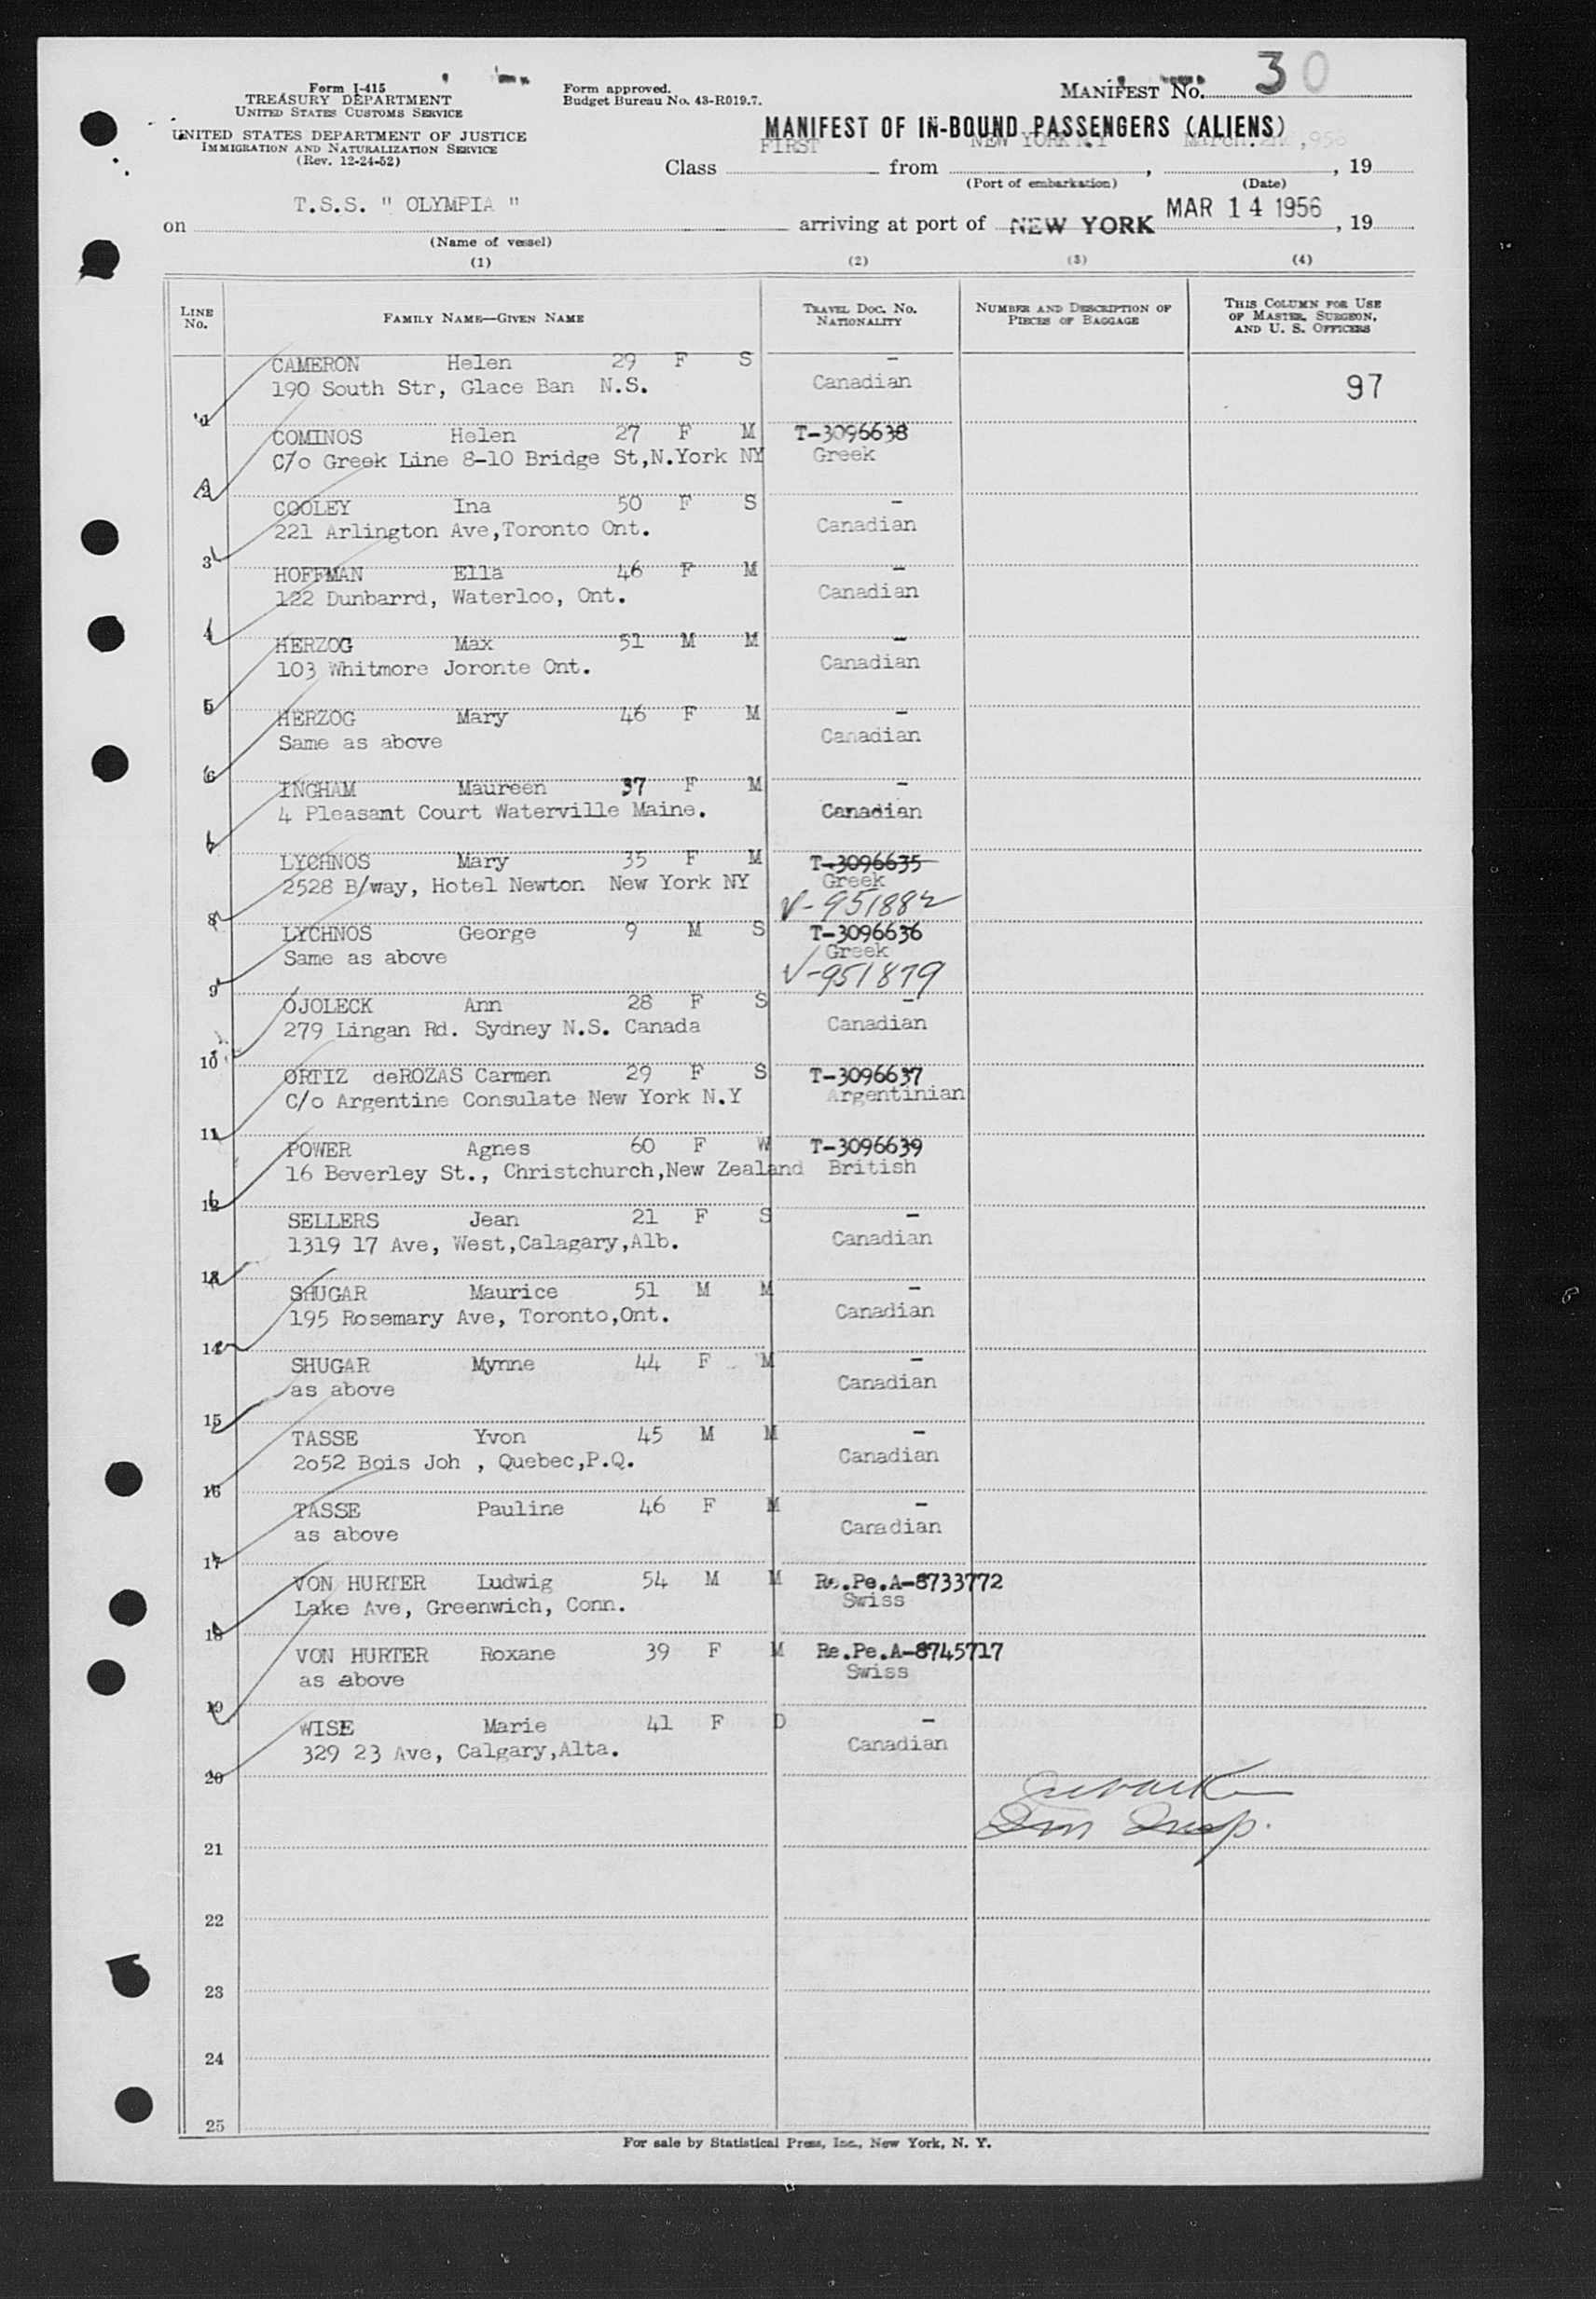 Form I-415
TREASURY DEPARTMENT
UNITED STATES CUSTOMS SERVICE
UNITED STATES DEPARTMENT OF JUSTICE
IMMIGRATION AND NATURALIZATION SERVICE
(Rev. 12-24-52)
Form approved.
Budget Bureau No. 43-R019.7.
MANIFEST No. 30
MANIFEST OF IN-BOUND PASSENGERS (ALIENS)
Class FIRST from NEW YORK N.Y , March. , 19
(Port of embarkation) (Date)
on T.S.S. " OLYMPIA " arriving at port of NEW YORK MAR 14 1956 , 19
(Name of vessel)
(1) (2) (3) (4)
LINE No. FAMILY NAME—GIVEN NAME TRAVEL DOC. No. NATIONALITY NUMBER AND DESCRIPTION OF PIECES OF BAGGAGE THIS COLUMN FOR USE OF MASTER, SURGEON, AND U. S. OFFICERS
CAMERON Helen 29 F S -
190 South Str, Glace Ban N.S. Canadian 97
1
COMINOS Helen 27 F M T-3096638
C/o Greek Line 8-10 Bridge St,N.York NY Greek
2
COOLEY Ina 50 F S -
221 Arlington Ave,Toronto Ont. Canadian
3
HOFFMAN Ella 46 F M -
122 Dunbarrd, Waterloo, Ont. Canadian
4
HERZOG Max 51 M M -
103 Whitmore Joronte Ont. Canadian
5
HERZOG Mary 46 F M -
Same as above Canadian
6
INGHAM Maureen 37 F M -
4 Pleasant Court Waterville Maine. Canadian
7
LYCHNOS Mary 35 F M T-3096635
2528 B/way, Hotel Newton New York NY Greek
8 V-951882
LYCHNOS George 9 M S T-3096636
Same as above Greek
9 V-951879
OJOLECK Ann 28 F S -
279 Lingan Rd. Sydney N.S. Canada Canadian
10
ORTIZ deROZAS Carmen 29 F S T-3096637
C/o Argentine Consulate New York N.Y Argentinian
11
POWER Agnes 60 F W T-3096639
16 Beverley St., Christchurch,New Zealand British
12
SELLERS Jean 21 F S -
1319 17 Ave, West,Calagary,Alb. Canadian
13
SHUGAR Maurice 51 M M -
195 Rosemary Ave, Toronto,Ont. Canadian
14
SHUGAR Mynne 44 F M -
as above Canadian
15
TASSE Yvon 45 M M -
2o52 Bois Joh , Quebec,P.Q. Canadian
16
TASSE Pauline 46 F M -
as above Canadian
17
VON HURTER Ludwig 54 M M Re.Pe.A-8733772
Lake Ave, Greenwich, Conn. Swiss
18
VON HURTER Roxane 39 F M Re.Pe.A-8745717
as above Swiss
19
WISE Marie 41 F D -
329 23 Ave, Calgary,Alta. Canadian
20
Imm Insp.
21
22
23
24
25
For sale by Statistical Press, Inc., New York, N. Y.